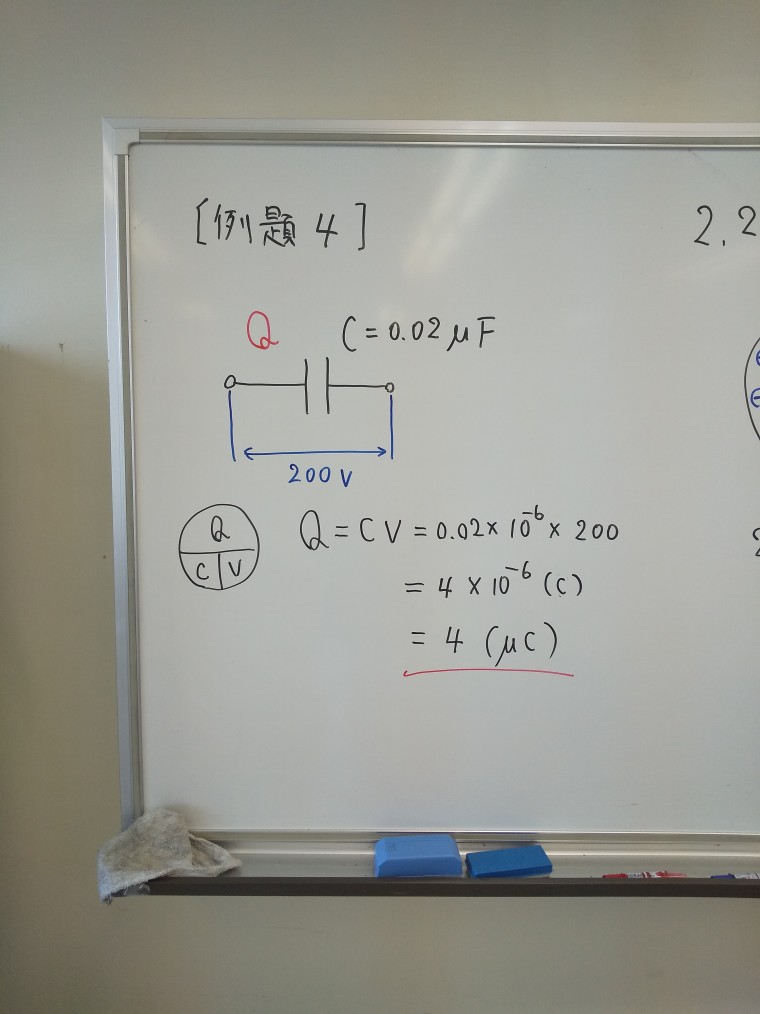 [例題 4]
2.2
Q C = 0.02 μF
200 V
Q
C V
Q = CV = 0.02 × 10⁻⁶ × 200
= 4 × 10⁻⁶ (C)
= 4 (μC)